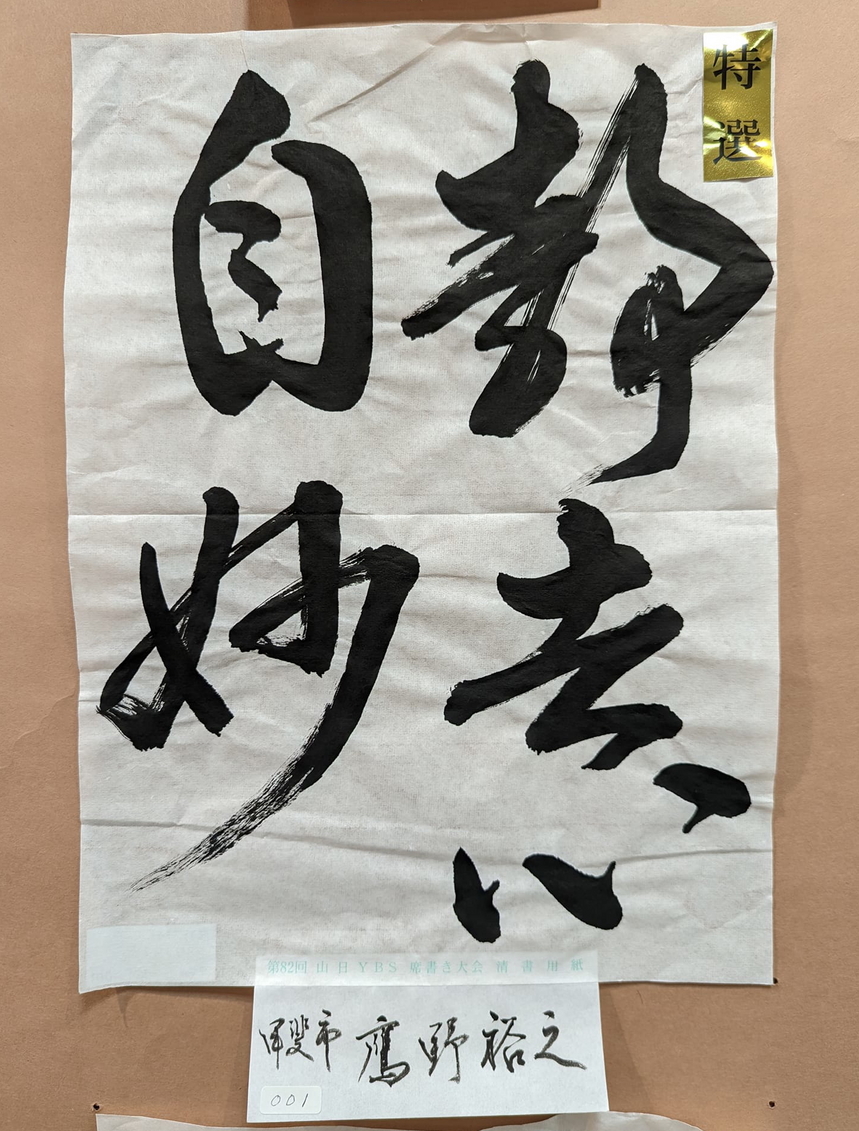 特選
静意
自妙
第82回 山日YBS 席書き大会 清書用紙
甲斐市 鷹野裕之
001